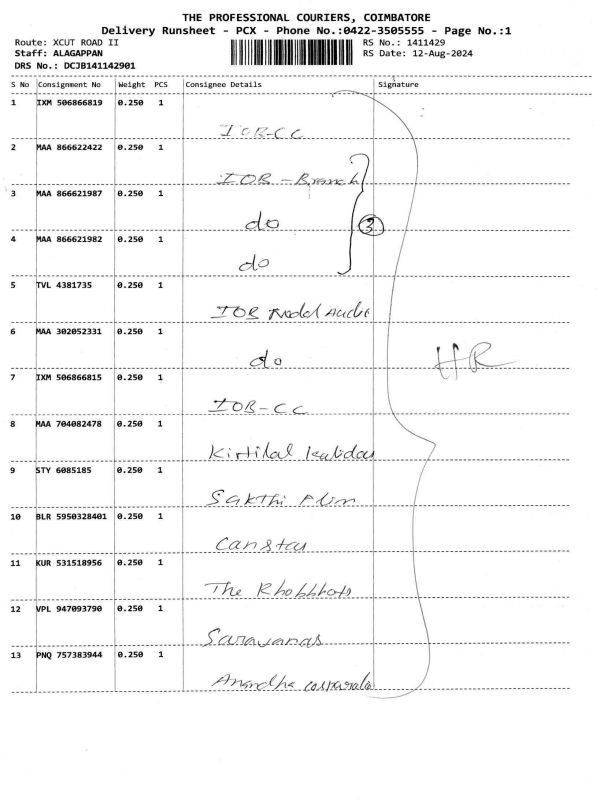 THE PROFESSIONAL COURIERS, COIMBATORE
Delivery Runsheet - PCX - Phone No.:0422-3505555 - Page No.:1
Route: XCUT ROAD II RS No.: 1411429
Staff: ALAGAPPAN RS Date: 12-Aug-2024
DRS No.: DCJB141142901
S No Consignment No Weight PCS Consignee Details Signature
1 IXM 506866819 0.250 1
IOB-CC
2 MAA 866622422 0.250 1
IOB - Branch
3 MAA 866621987 0.250 1
do 3
4 MAA 866621982 0.250 1
do
5 TVL 4381735 0.250 1
IOB
6 MAA 302052331 0.250 1
do HR
7 IXM 506866815 0.250 1
IOB-CC
8 MAA 704082478 0.250 1
Kirtilal
9 STY 6085185 0.250 1
Sakthi
10 BLR 5950328401 0.250 1
11 KUR 531518956 0.250 1
The
12 VPL 947093790 0.250 1
Saravanas
13 PNQ 757383944 0.250 1